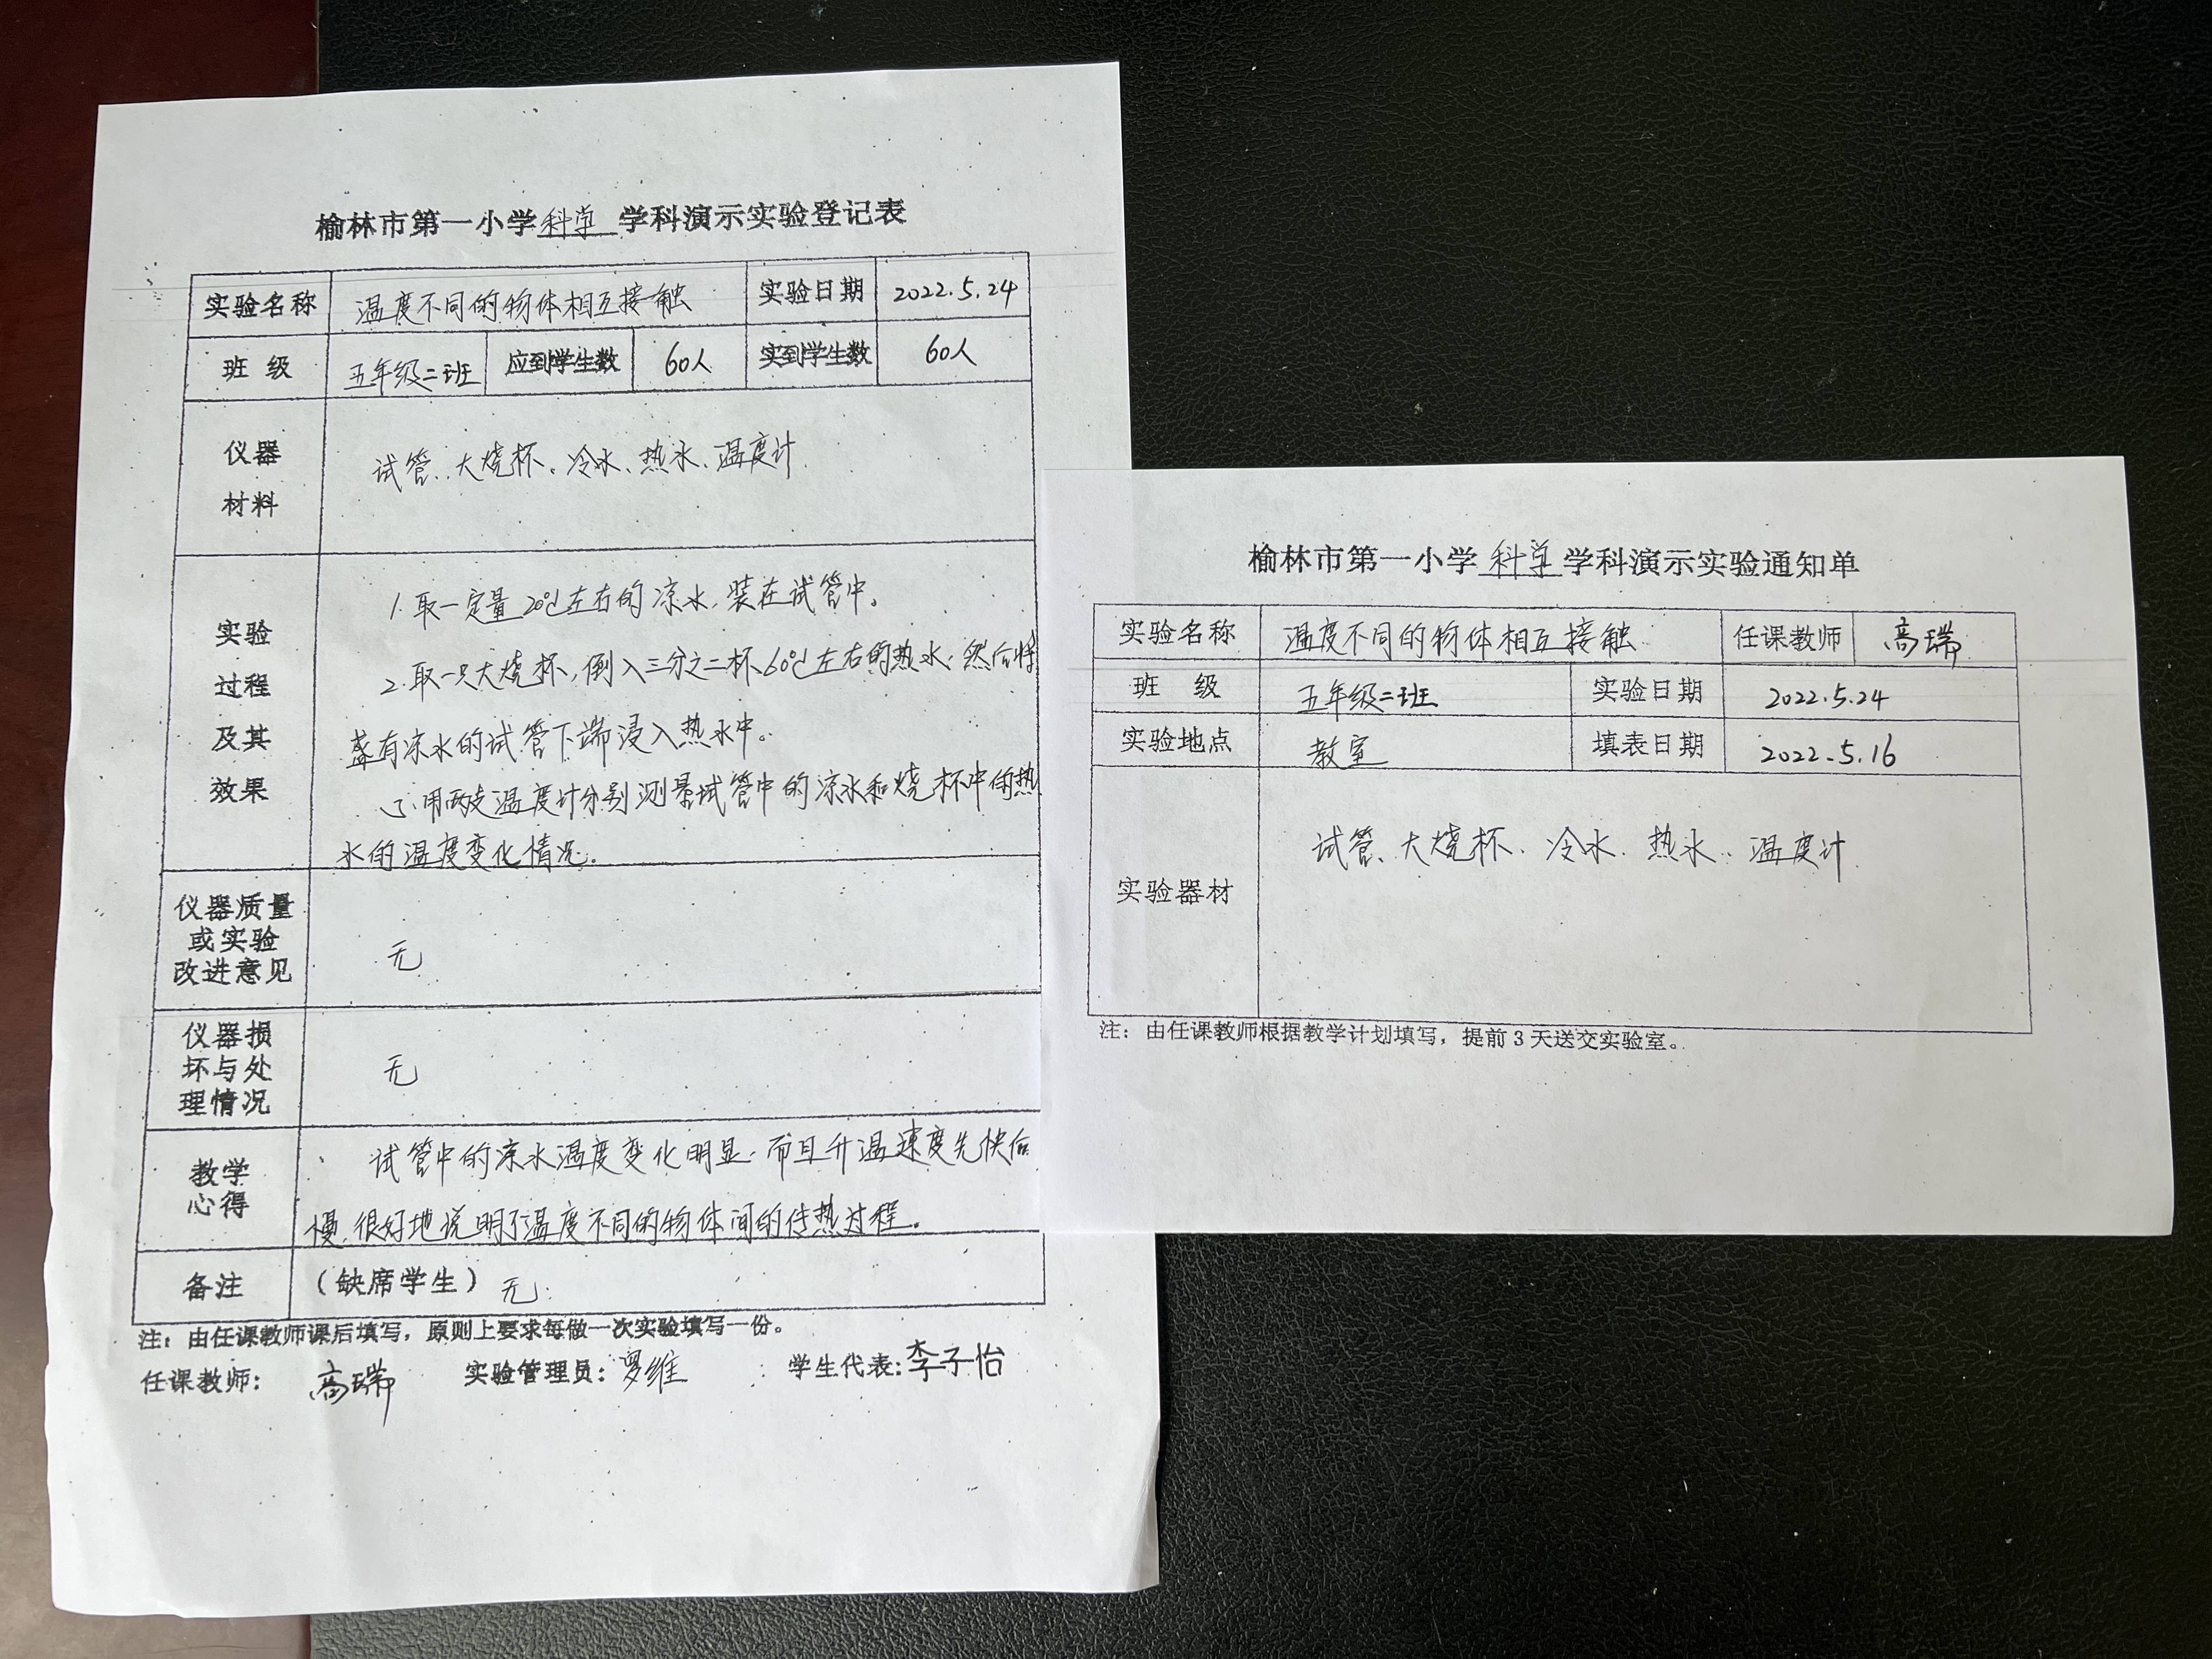 榆林市第一小学科学学科演示实验登记表
实验名称 温度不同的物体相互接触 实验日期 2022.5.24
班 级 五年级二班 应到学生数 60人 实到学生数 60人
仪器
材料
试管、大烧杯、冷水、热水、温度计
实验
过程
及其
效果
1.取一定量20℃左右的凉水,装在试管中。
2.取一只大烧杯,倒入三分之二杯60℃左右的热水,然后将
盛有凉水的试管下端浸入热水中。
3.用两支温度计分别测量试管中的凉水和烧杯中的热
水的温度变化情况。
仪器质量
或实验
改进意见
无
仪器损
坏与处
理情况
无
教学
心得
试管中的凉水温度变化明显.而且升温速度先快后
慢,很好地说明了温度不同的物体间的传热过程。
备注 (缺席学生) 无.
注:由任课教师课后填写,原则上要求每做一次实验填写一份。
任课教师: 高瑞 实验管理员:罗维 学生代表:李子怡
榆林市第一小学科学学科演示实验通知单
实验名称 温度不同的物体相互接触 任课教师 高瑞
班 级 五年级二班 实验日期 2022.5.24
实验地点 教室 填表日期 2022.5.16
实验器材 试管、大烧杯、冷水、热水、温度计
注:由任课教师根据教学计划填写,提前3天送交实验室。